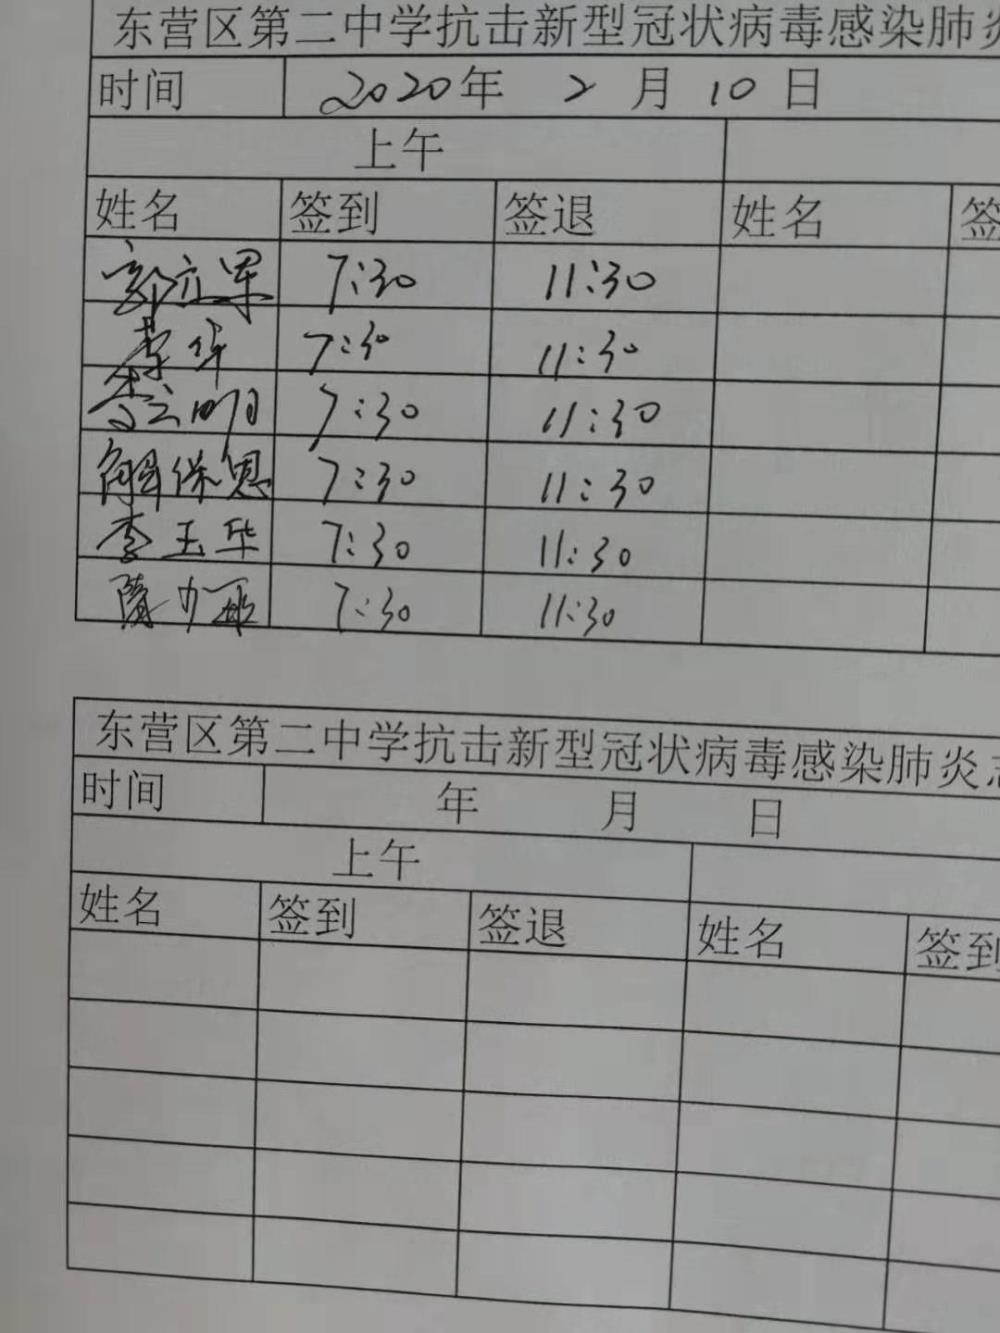 东营区第二中学抗击新型冠状病毒感染肺炎
时间 2020年 2 月 10 日
上午
姓名 签到 签退 姓名 签
郭立军 7:30 11:30
李华 7:30 11:30
李云明 7:30 11:30
解保恩 7:30 11:30
李玉华 7:30 11:30
隋 7:30 11:30
东营区第二中学抗击新型冠状病毒感染肺炎志
时间 年 月 日
上午
姓名 签到 签退 姓名 签到